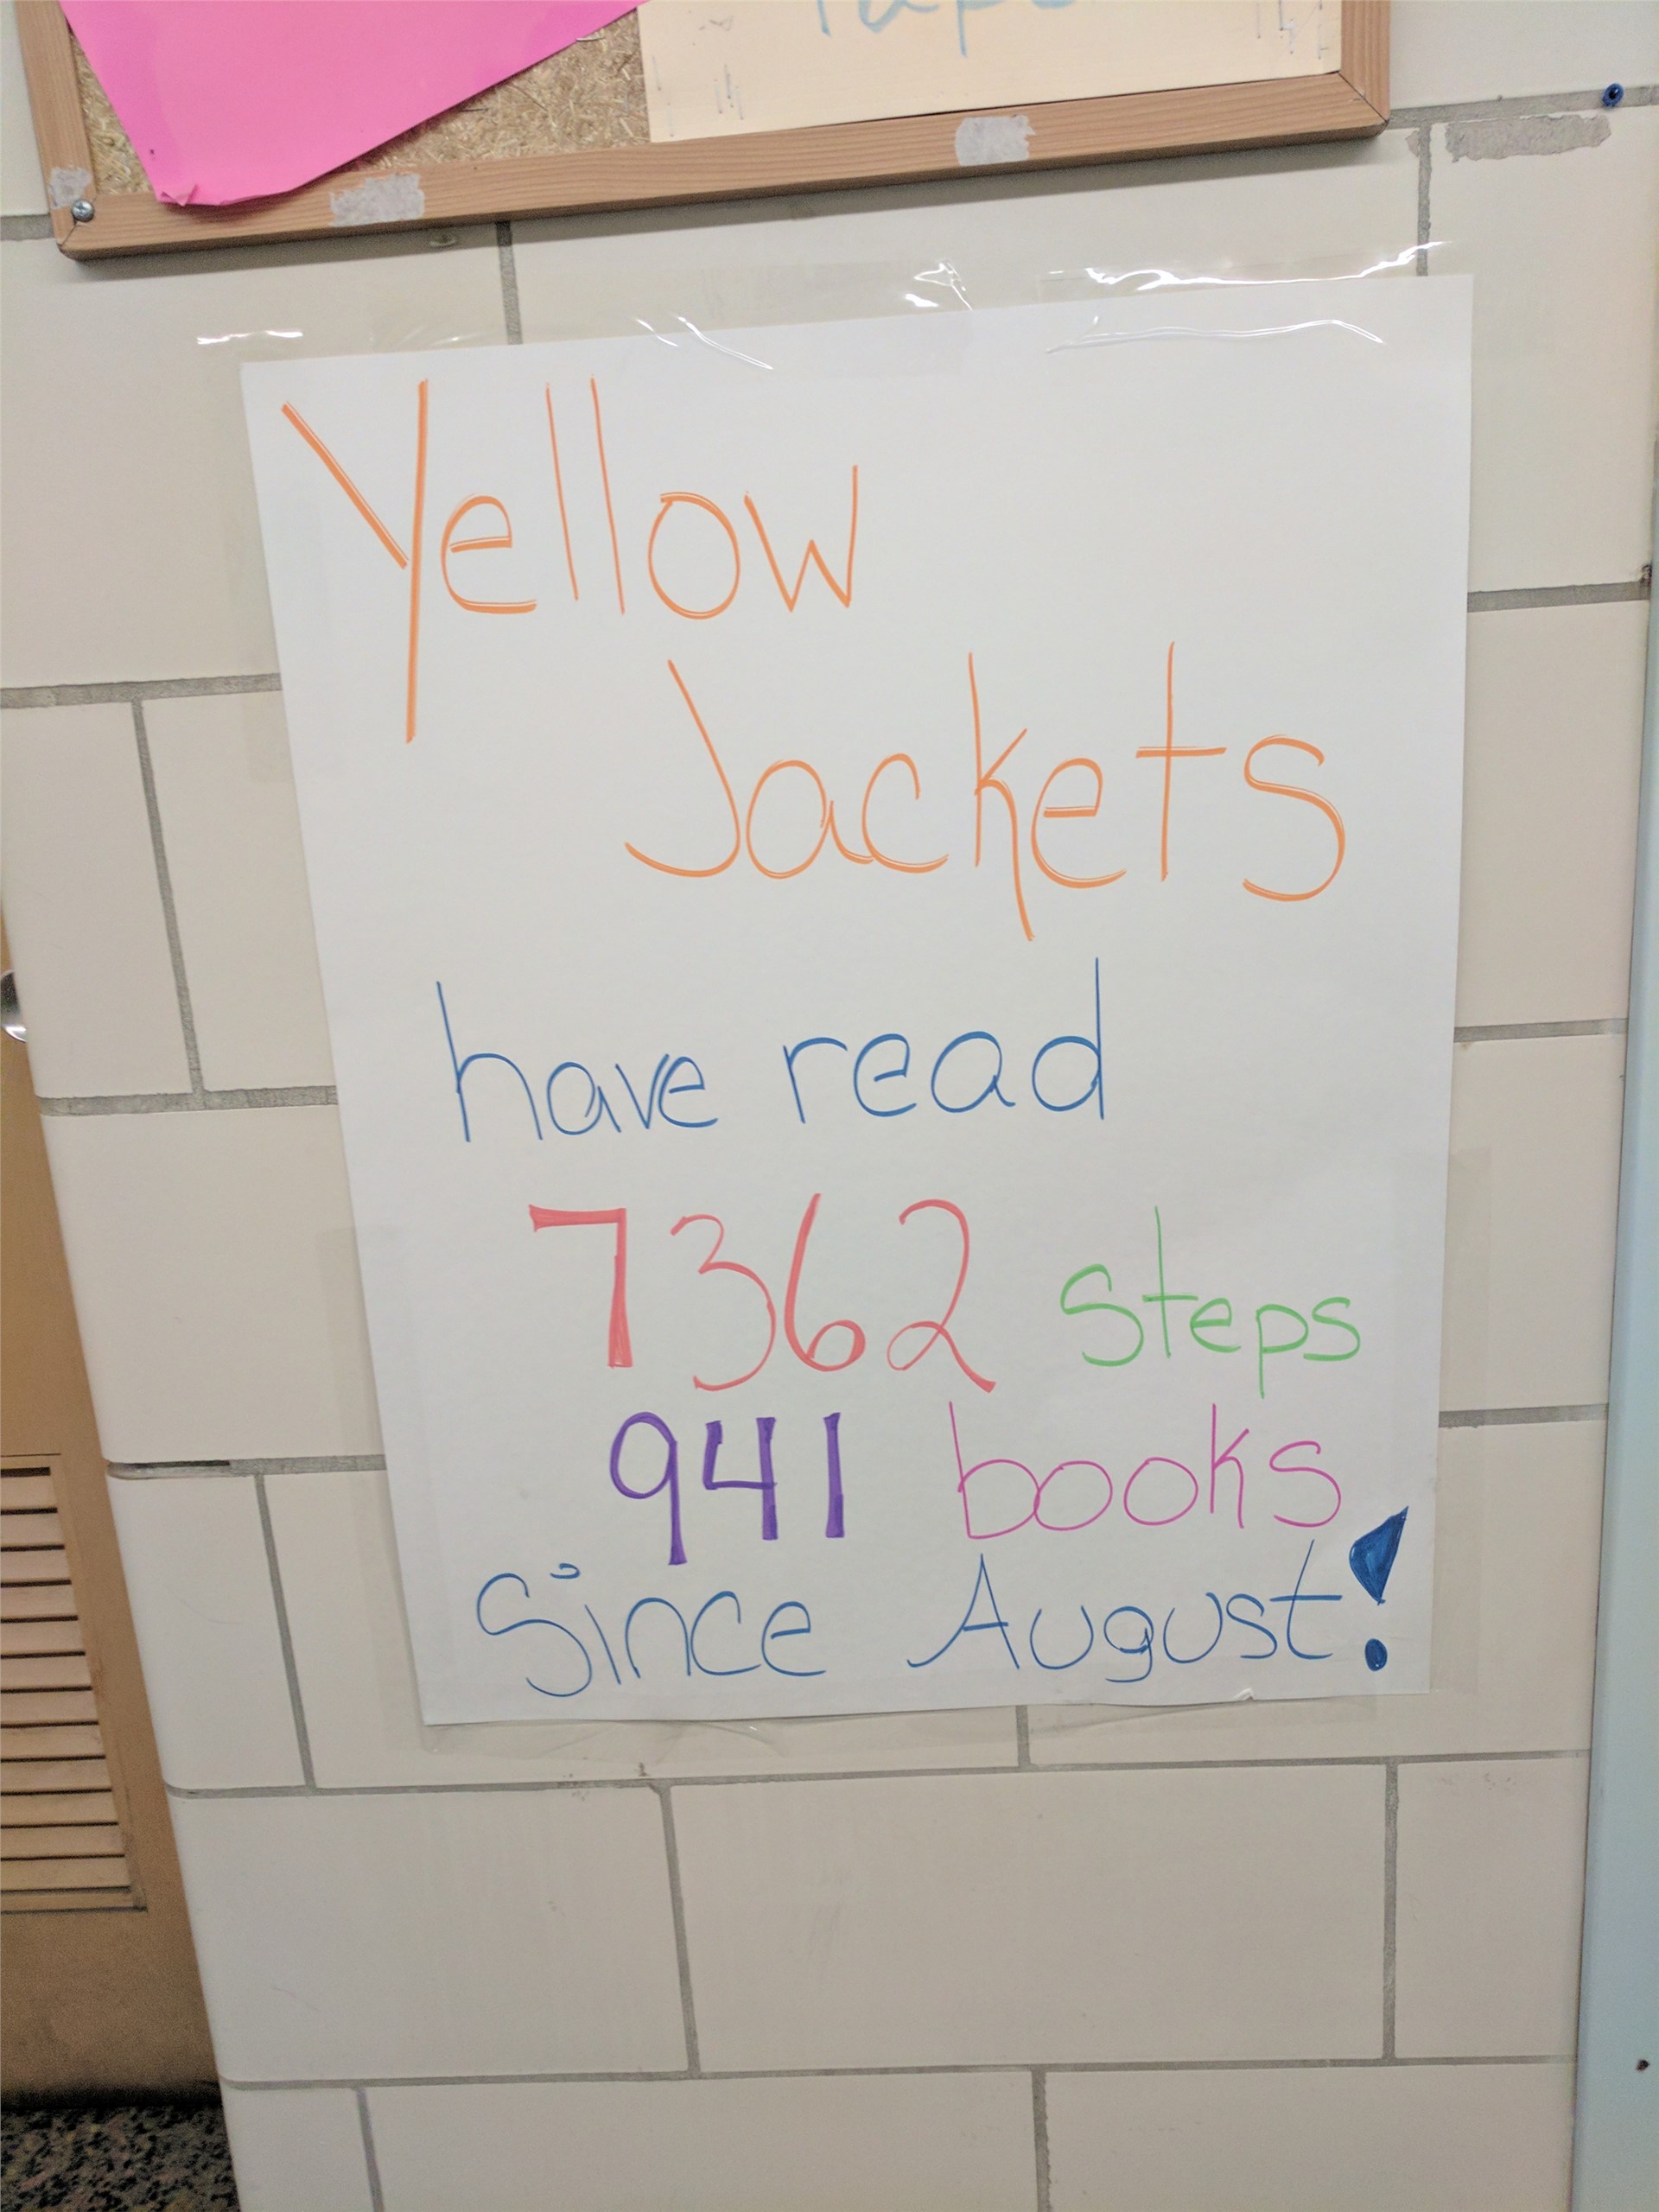 Yellow
Jackets
have read
7362 steps
941 books
Since August!